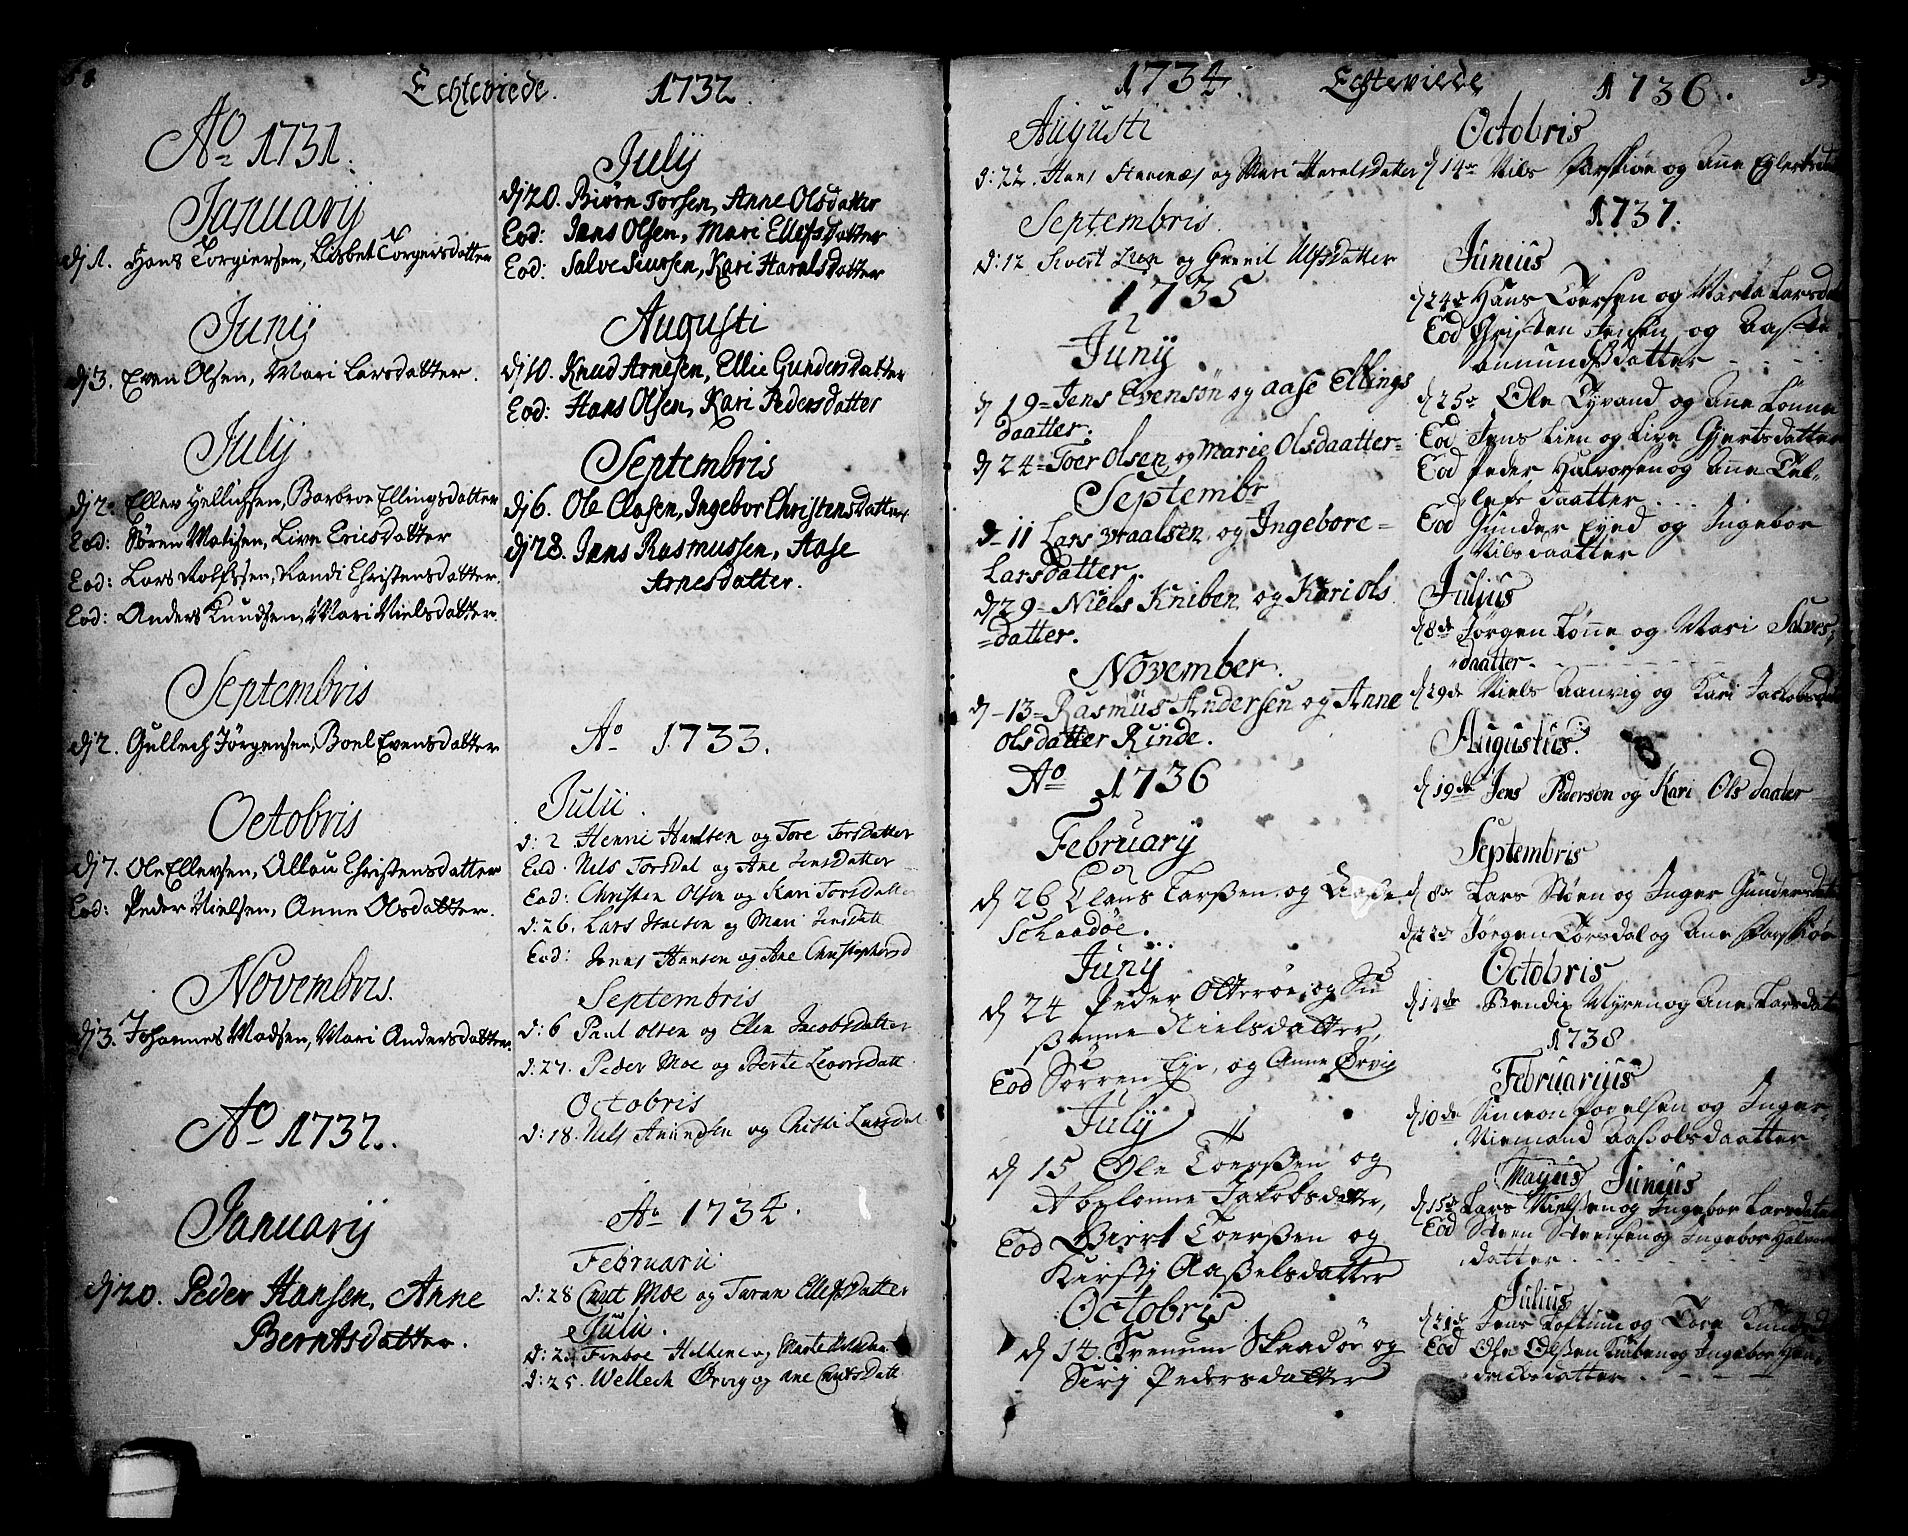 58
Echteviede. 1732.
Ao 1731.
Januarij
dj 1. Hans Torgiersen, Lisbet Torgiersdatter
Junij
dj 3. Even Olsen, Mari Larsdatter.
July
dj 2. Ellev Hellichsen, Barbroe Ellingsdatter
Eod: Sören Matisen, Live Ericsdatter
Eod: Lars Rolfssen, Randi Christensdatter.
Eod: Anders Knudsen, Mari Nielsdatter.
Septembris
dj 2. Gullech Jörgensen, Boel Evensdatter
Octobris
dj 7. Ole Ellevsen, Allou Christensdatter
Eod: Peder Nielsen, Anne Olsdatter.
Novembris.
dj 3. Johannes Madsen, Mari Andersdatter.
Ao 1732.
Januarij
dj 20. Peder Hansen, Anne
Berntsdatter.
July
dj 20. Biörn Torsen, Anne Olsdatter
Eod: Jens Olsen, Mari Ellefsdatter
Eod: Salve Siursen, Kari Haralsdatter
Augusti
dj 10. Knud Arnesen, Ellie Gundersdatter
Eod: Hans Olsen, Kari Pedersdatter
Septembris
dj 6. Ole Clasen, Ingebor Christensdatter
dj 28. Jens Rasmussen, Aase
Arnesdatter.
Ao 1733.
Julii.
d: 2 Henric og Tore Torsdatter
Eod. Nels Torsdal og Ane Jensdatter
Eod: Christen Olsen og Kari Torsdatter
d: 26. Lars og Mari Jensdatt
Eod: Jens Hansen og Ane Christophersd
Septembris
d: 6 Paul Olsen og Elen Jacobsdatter
d: 27. Peder Moe og Berte
Octobris
d: 18. Nels Anundsen og Christi Larsdat.
Ao 1734.
Februarii
d: 28 Cnut Moe og Taran Ellefsdatter
Julii.
d: og Marte
d: 25. Wellech Ørvig og ane Cnutsdatt
1734. Echteviede 1736.
Augusti
d: 22. Hans og Mari Haralsdatter
Septembris.
d: 12 Sivert Lien og Gunnil Ulfsdatter
1735
Junij
dj 19= Jens Evensön og aase Ellings
daatter.
dj 24= Toer Olsen og Marie Olsdaatter=
Septembr
d- 11 Lars og Ingebore=
Larsdatter.
dj 29= Niels Kniben og Kari Ols
=datter.
November.
dj -13= Rasmus Andersen og Anne
Olsdatter Rinde.
Ao 1736
Februarij
dj 26 Claus Larßen, og Aaße
Schaadöe.
Junij
dj 24 Peder Otteröe, og Su
ßanne Nielsdatter,
Eod Sörren Eje, og Anne Ørvig
July
dj 15 Ole Toerßen og
Abelonne Jakobsdatter,
Eod Birrt Toerßen og
Kirstj Aaßelsdatter
Octobris
dj 14. Svenum Skaadör og
Sirj Pedersdatter
Octobris
dj 14de Nils og Ane
1737.
Junius
dj 24de Hans Toersen og Maria Larsda
Eod Christen Jensen og Aaße
Aamundsdatter
dj 25de Ole Tyvand og Ane Lönne
Eod Jens Lien og Live Gjertsdatter
Eod Peder Halvorsen og Anne Tel-
lefs daatter
Eod Gunder Eyed og Ingebor
Nilsdaatter
Julius
dj 8de Jörgen Lönne og Mari Salves
daatter
dj 29de Niels Aanvig og Kari Jacobsda
Augustus.
dj 19de Jens Pedersön og Kari Ols daater
Septembris
dj 8de Lars Stöen og Inger Gundersdat
dj 22de Jörgen Torsdal og Ane
Octobris
dj 14de Bendix Myren og Ane Larsdat
1738
Februarius
dj 10de Simeon Povelsen og Inger
Niemand Aasolsdaatter
Mayus Junius
dj 15de Lars Nielßen og Ingebor Larsdater
Eod Steen Steensen og Ingebor Halvor
datter
Julius
dj 21de Jens Loftum og Tore
Eod Ole Olßen Kniben og Ingebor Hen
dricksdatter